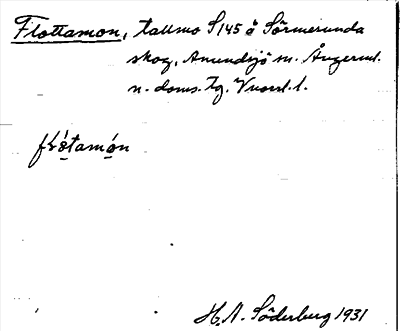 Flottamon, tallmo S 145 å Sörmerunda
skog, Anundsjö sn. Ångerml.
n. doms. tg. Vuord. l.
flo̱tamo̱n
H. N. Söderberg 1931